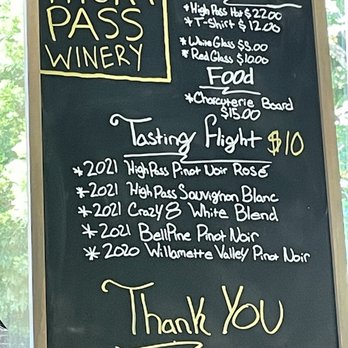 PASS
WINERY
*High Pass Hat $22.00
*T-Shirt $12.00
*White Glass $5.00
*Red Glass $10.00
Food
*Charcuterie Board
$15.00
Tasting Flight $10
*2021 High Pass Pinot Noir Rosé
*2021 High Pass Sauvignon Blanc
*2021 Crazy 8 White Blend
*2021 BellPine Pinot Noir
*2020 Willamette Valley Pinot Noir
Thank You